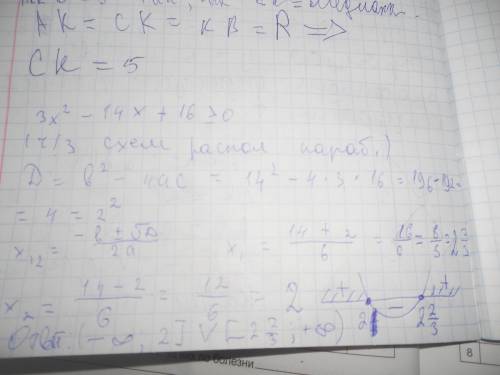 AK = CK = KB = R ⟹
CK = 5
3x² - 14x + 16 ≥ 0
(ч/з схем распол параб.)
D = b² - 4ac = 14² - 4·3·16 = 196-192=
= 4 = 2²
x₁,₂ = (-b ± √D)/2a x₁ = (14 + 2)/6 = 16/6 = 8/3 = 2 2/3
x₂ = (14 - 2)/6 = 12/6 = 2 + - + 2 2 2/3
Ответ: (-∞; 2] V [2 2/3; +∞)
по болезни 8